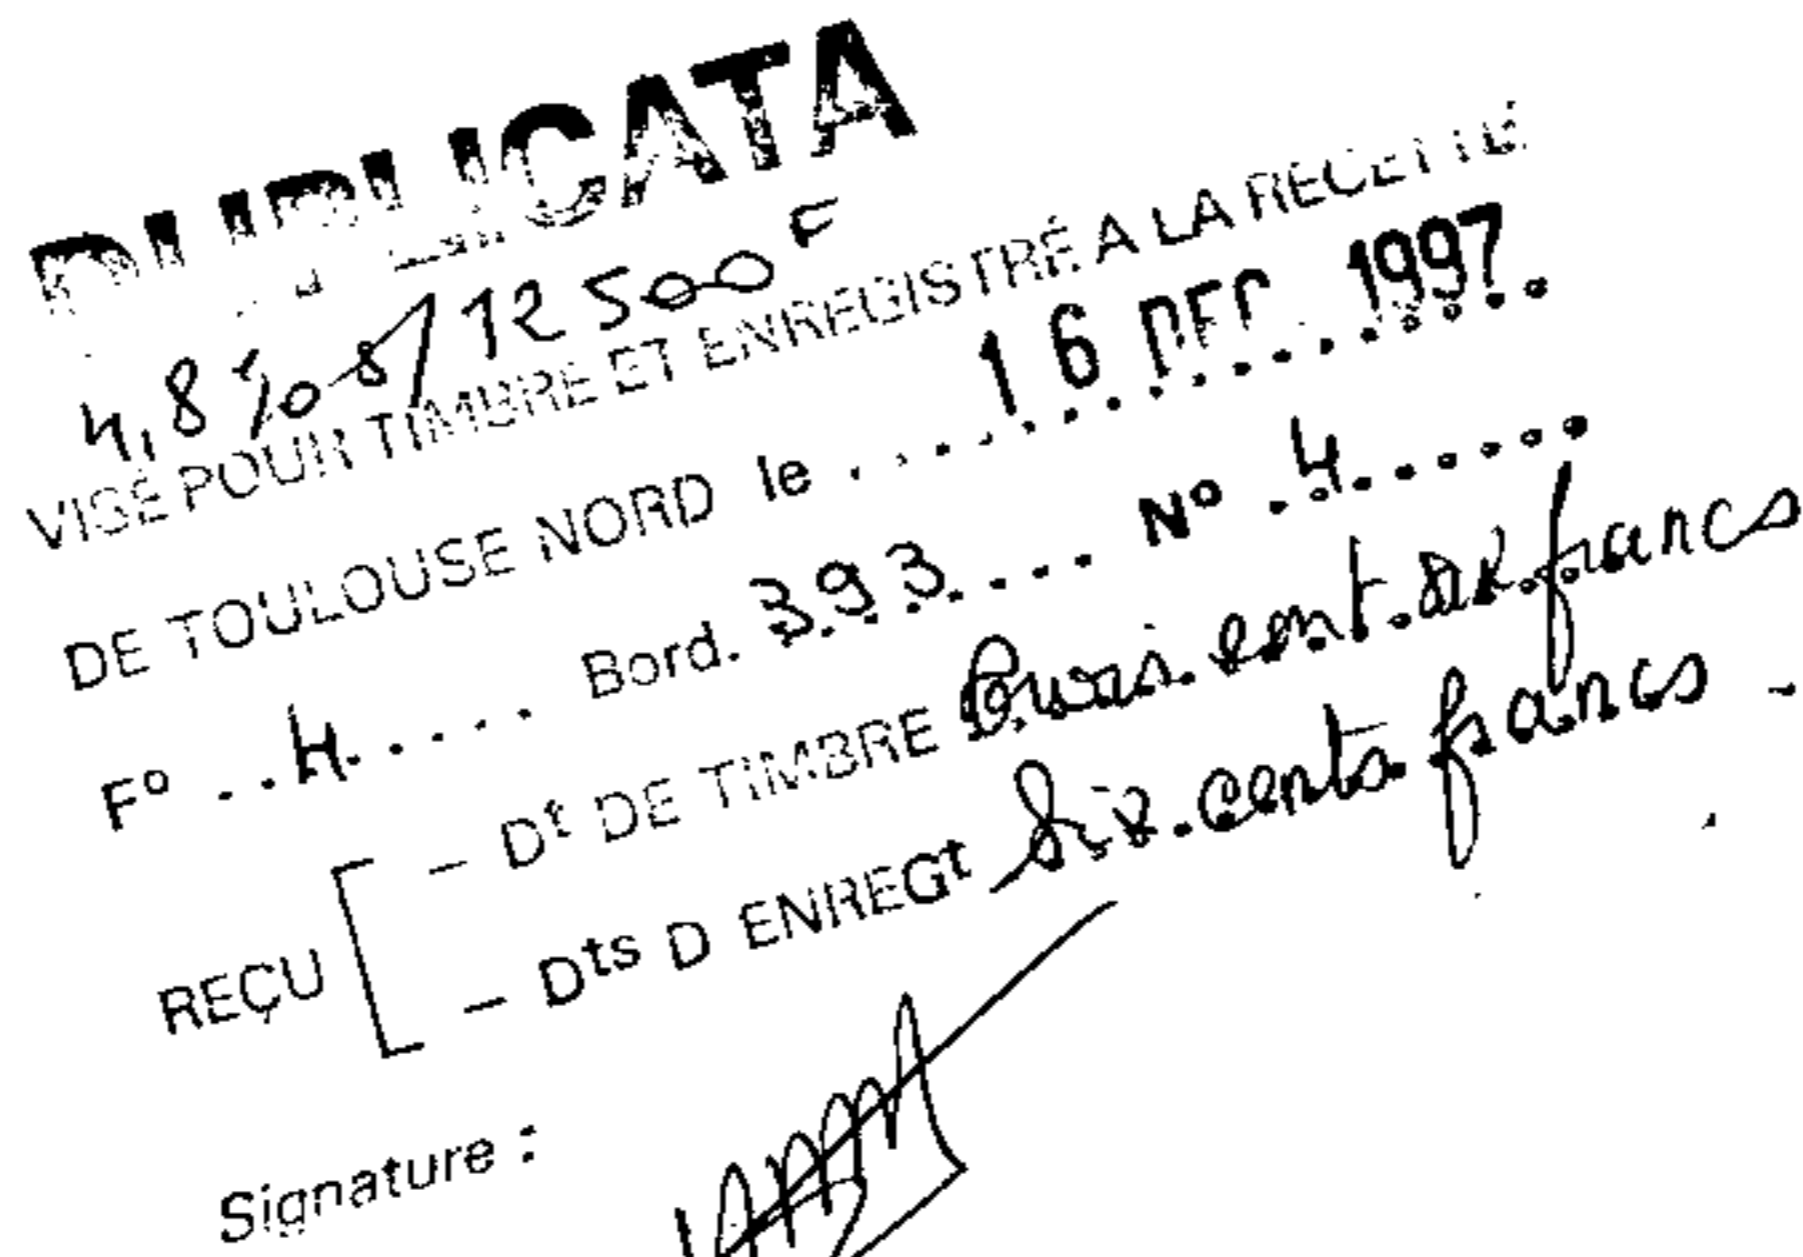 DUPLICATA
4,8% s/ 12 500 F
VISÉ POUR TIMBRE ET ENREGISTRÉ A LA RECETTE
DE TOULOUSE NORD le . . . . . 16 DEC. 1997. .
F° . . 4. . . . . Bord. 393. . . . N° . 4. . . . . .
REÇU
– Dt DE TIMBRE Trois. cent. six. francs
– Dts D ENREGt Six. cents. francs -
Signature :